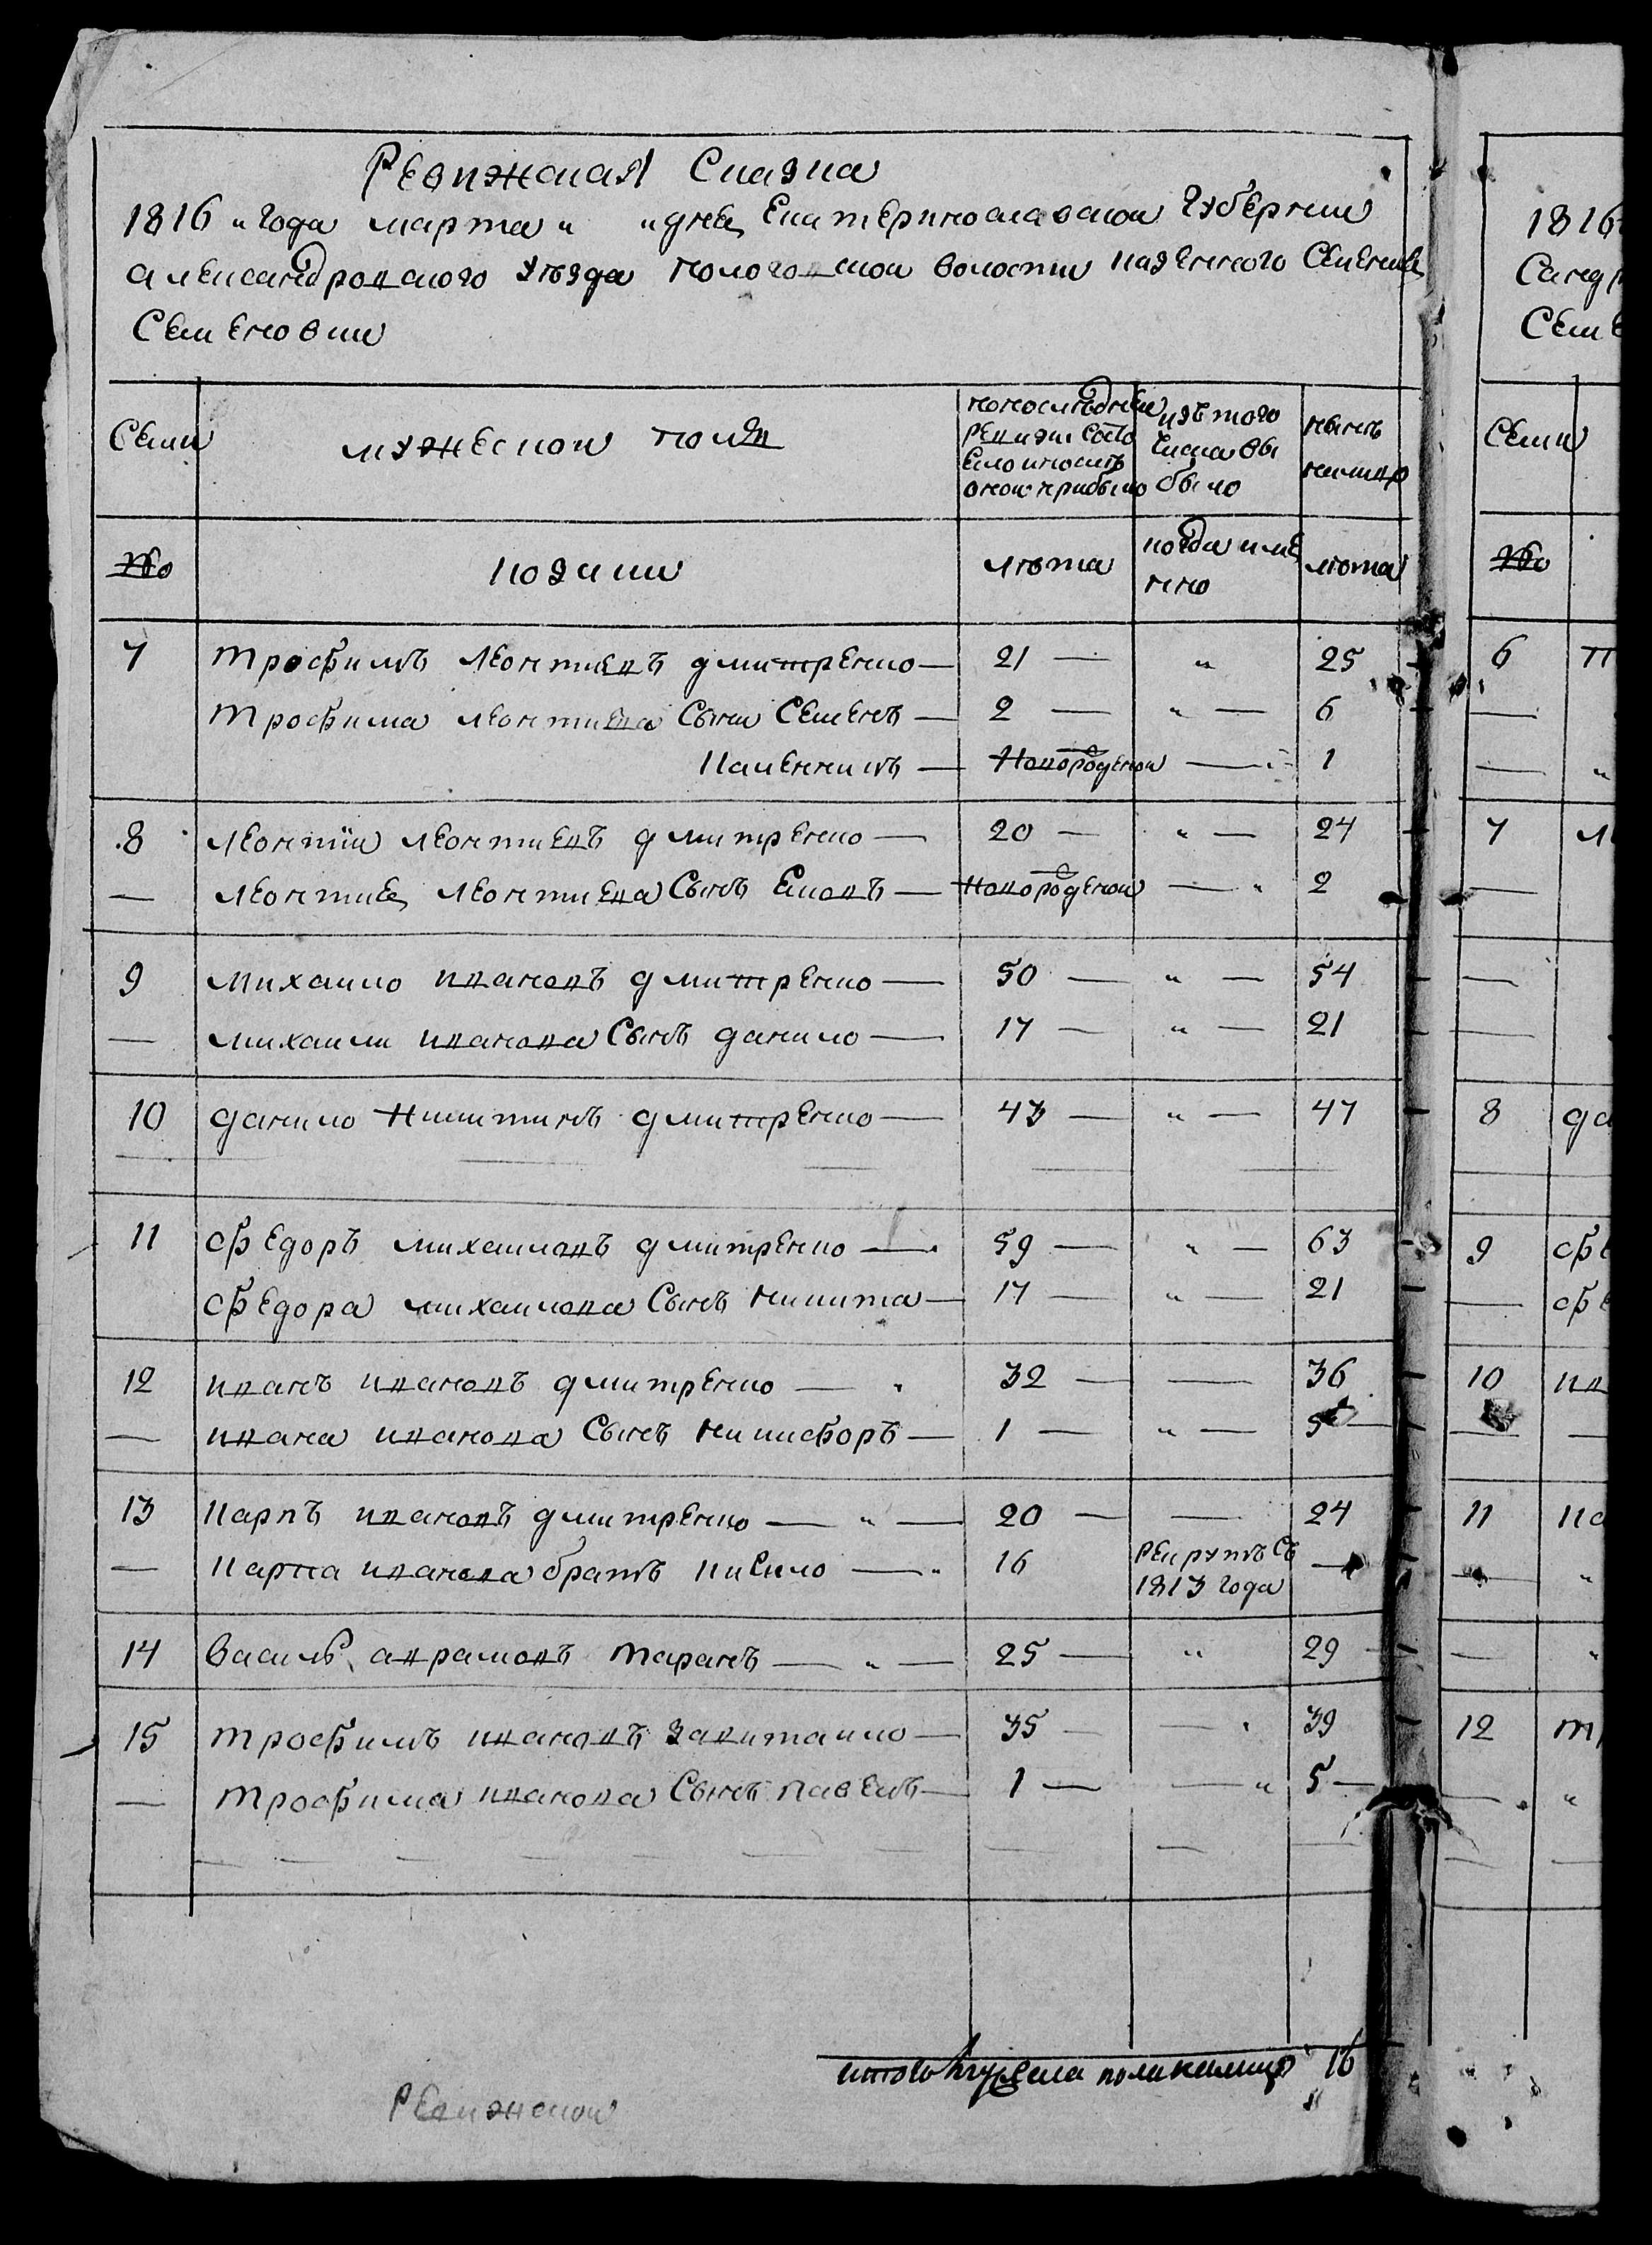 Ревизкая Сказка
1816 „ года марта „ „ дня Екатеринославскои Губернии
александровского Уѣзда пологовскои волости казенного Селения
Семеновки
Семи
мужескои полъ
попоследнеи
ревизи состо
яло ипослѣ
онои прибыло
изъ того
числа вы
было
нынѣ
налицо
№
козаки
лѣта
когда имя
нно
лѣта
7 трофимъ леонтиевъ дмитренко — 21 — „ 25
трофима леонтиева Сыни Семенъ — 2 — „ — 6
Калениикъ — Новороденои — 1
8 леонтіи леонтиевъ дмитренко — 20 — „ — 24
— леонтия леонтиева Сынъ Яковъ — Новороденои — „ 2
9 михаило ивановъ дмитренко — 50 — „ — 54
— михаили иванова Сынъ данило — 17 — „ — 21
10 данило Никитинъ дмитренко — 43 — „ — 47
11 федоръ михаиловъ дмитренко — 59 — „ — 63
федора михаилова Сынъ никита — 17 — „ — 21
12 иванъ ивановъ дмитренко — „ 32 — — 36
— ивана иванова Сынъ никифоръ — 1 — „ — 5 —
13 Карпъ ивановъ дмитренко — „ — 20 — — 24
— Карпа иванова братъ кирило — „ 16 рекрутъ съ —
1813 года
14 василь аврамовъ таранъ — „ — 25 — „ 29
15 трофимъ ивановъ завитаило — 35 — — „ 39
— трофима иванова Сынъ павелъ — 1 — — „ 5 —
итого мужеска пола налицо 16
Ревизкои
1816
Санд
Сем
Семи
№
6
7
8 да
9 фе
фе
10 ив
11 ка
12 т